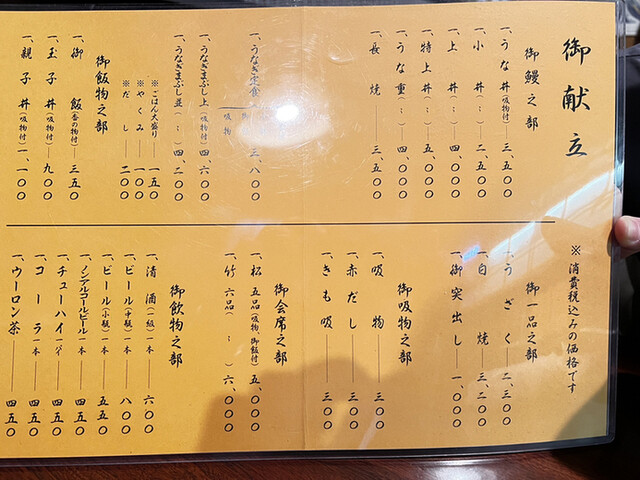 御献立
御鰻之部
一、うな丼(吸物付)―三、五〇〇
一、小丼(〃)―二、五〇〇
一、上丼(〃)―四、〇〇〇
一、特上丼(〃)―五、〇〇〇
一、うな重(〃)―四、〇〇〇
一、長焼―三、五〇〇
一、うなぎ定食 吸物 三、八〇〇
一、うなぎまぶし上(吸物付)四、六〇〇
一、うなぎまぶし並(〃)四、二〇〇
※ごはん大盛り―一五〇
※やくみ―一〇〇
※だし―二〇〇
御飯物之部
一、御飯(香の物付)―三五〇
一、玉子丼(吸物付)―九〇〇
一、親子丼(吸物付)一、一〇〇
※消費税込みの価格です
御一品之部
一、うざく―二、三〇〇
一、白焼―三、二〇〇
一、御突出し―一、〇〇〇
御吸物之部
一、吸物―三〇〇
一、赤だし―三五〇
一、きも吸―三〇〇
御会席之部
一、松五品(吸物、御飯付)五、〇〇〇
一、竹六品(〃)六、〇〇〇
御飲物之部
一、清酒(二級)一本―六〇〇
一、ビール(中瓶)一本―八〇〇
一、ビール(小瓶)一本―五五〇
一、ノンアルコールビール一本―四五〇
一、チューハイ一パイ―四五〇
一、コーラ一本―四五〇
一、ウーロン茶―四五〇